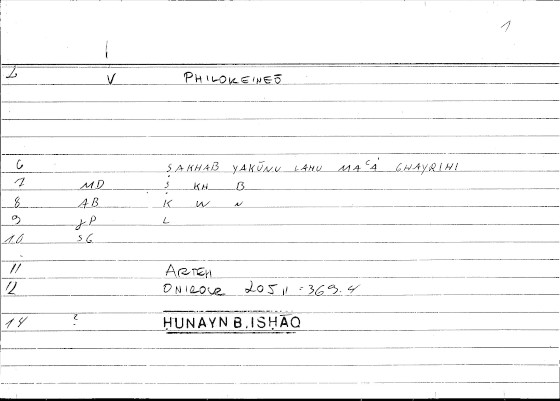 1
V PHILOKEINEŌ
6 ṢAKHAB YAKŪNU LAHU MAʿA GHAYRIHI
7 MD Ṣ KH B
8 AB K W N
9 P L
10 SG
11 ARTEM
12 ONIROCR 205,11 = 369.4
14 ? HUNAYN B. ISḤĀQ